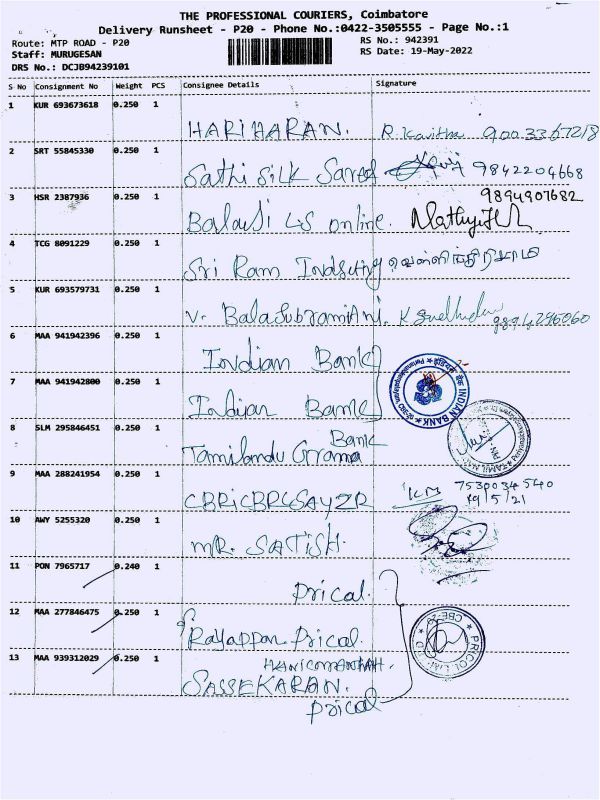 THE PROFESSIONAL COURIERS, Coimbatore
Delivery Runsheet - P20 - Phone No.:0422-3505555 - Page No.:1
Route: MTP ROAD - P20 RS No.: 942391
Staff: MURUGESAN RS Date: 19-May-2022
DRS No.: DCJB94239101
S No Consignment No Weight PCS Consignee Details Signature
1 KUR 693673618 0.250 1
HARIHARAN. R. Kavitha
2 SRT 55845330 0.250 1
Sathi Silk 9842204668
3 HSR 2387936 0.250 1 9894907682
Balaji online.
4 TCG 8091229 0.250 1
Sri Ram
5 KUR 693579731 0.250 1
V. BalaSubramiani.
6 MAA 941942396 0.250 1
Indian Bank
7 MAA 941942800 0.250 1
Indian Bank
INDIAN BANK
8 SLM 295846451 0.250 1
Bank
Tamilnadu Grama
9 MAA 288241954 0.250 1
7530034540
19/5/21
10 AWY 5255320 0.250 1
MR. SATISH.
11 PON 7965717 0.240 1
Prical.
12 MAA 277846475 0.250 1
Rayappan Prical.
13 MAA 939312029 0.250 1
SASSEKARAN.
Prical